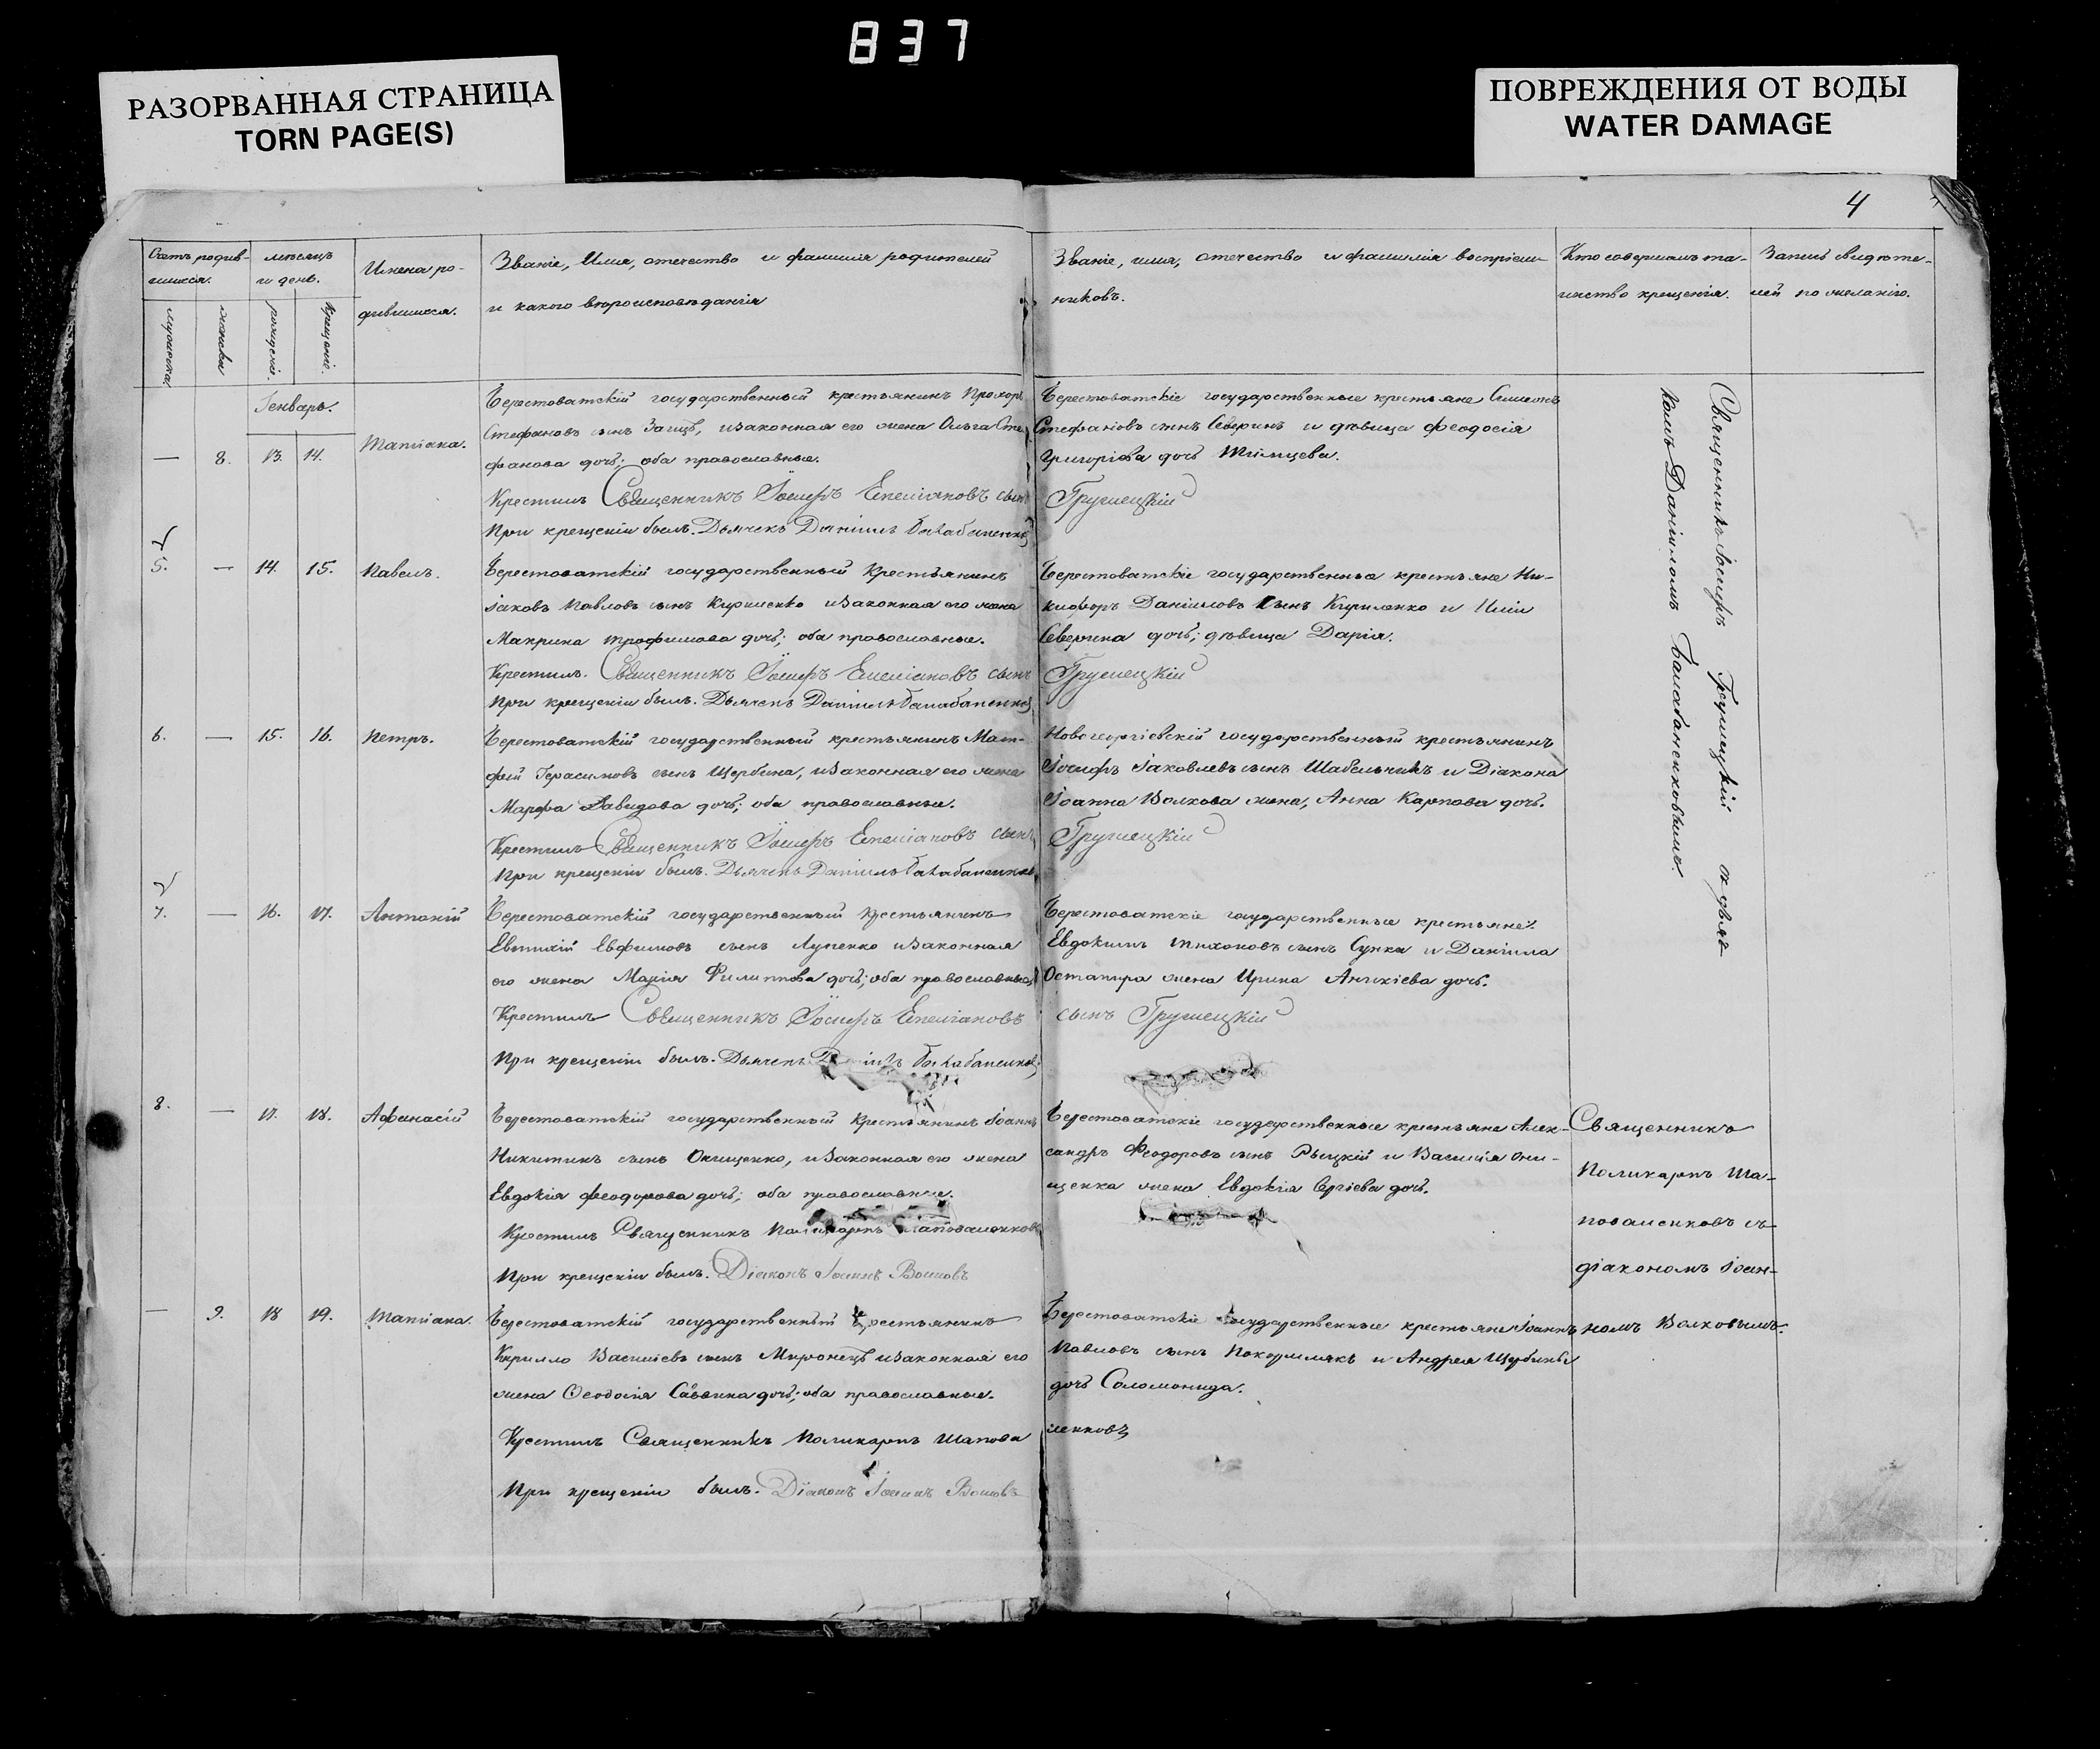 837
РАЗОРВАННАЯ СТРАНИЦА
TORN PAGE(S)
ПОВРЕЖДЕНИЯ ОТ ВОДЫ
WATER DAMAGE
4
Счетъ родив-
шихся.
мужеска
женска
месяцъ
и день.
рожденія.
крещенія.
Имена ро-
дившихся.
Званіе, Имя, отечество и фамилія родителей
и какого вѣроисповѣданія
Званіе, имя, отечество и фамилія воспріем-
никовъ.
Кто совершалъ та-
инство крещенія.
Запись свидѣте-
лей по желанію.
Генварь.
— 8. 13. 14. Татіана.
Берестоватскій государственный крестьянинъ Прохоръ
Стефановъ сынъ Заецъ, изаконная его жена Ольга Сте
фанова дочь; оба православные.
Крестилъ Священникъ Іосифъ Емеліановъ сынъ
При крещеніи былъ. Дьячекъ Даніилъ Балабаненковъ
Берестоватскіе государственные крестьяне Симеонъ
Стефановъ сынъ Северинъ и дѣвица Феодосія
Григоріева дочь
Грушецкій
5. — 14. 15. Павелъ.
Берестоватскій государственный Крестьянинъ
Іаковъ Павловъ сынъ Кириленко изаконная его жена
Макрина Трофимова дочь; оба православные.
Крестилъ. Священникъ Іосифъ Емеліановъ сынъ
При крещеніи былъ. Дьячекъ Даніилъ Балабаненковъ
Берестоватскіе государственные крестьяне Ни-
кифоръ Даніиловъ сынъ Кириленко и Иліи
Северина дочь; дѣвица Дарія.
Грушецкій
6. — 15. 16. Петръ.
Берестоватскій государственный крестьянинъ Мат-
фей Герасимовъ сынъ Щербина, изаконная его жена
Марфа Давидова дочь; оба православные.
Крестилъ Священникъ Іосифъ Емеліановъ сынъ
При крещеніи былъ. Дьячекъ Даніилъ Балабаненковъ
Новогеоргіевскій государственный крестьянинъ
Іосифъ Іаковлевъ сынъ Шабельникъ и Діакона
Іоанна Волкова жена, Анна Карпова дочь.
Грушецкій
7. — 16. 17. Антоній
Берестоватскій государственный крестьянинъ
Евтихій Евфимовъ сынъ Луценко изаконная
его жена Марія Филиппова дочь; оба православные
Крестилъ Священникъ Іосифъ Емеліановъ
При крещеніи былъ. Дьячекъ Даніилъ Балабаненковъ
Берестоватскіе государственные крестьяне:
Евдокимъ Тихоновъ сынъ Супка и Даніила
Остапира жена Ирина Аникіева дочь.
сынъ Грушецкій
Священникъ Іосифъ Грушецкій съ дья-
комъ Даніиломъ Балабаненковымъ.
8. — 17. 18. Афанасій
Берестоватскій государственный Крестьянинъ Іоаннъ
Никитинъ сынъ Онищенко, изаконная его жена
Евдокія Феодорова дочь; оба православные.
Крестилъ Священникъ Поликарпъ Шаповаленковъ
При крещеніи былъ. Діаконъ Іоаннъ Волковъ
Берестоватскіе государственные крестьяне Алек-
сандръ Феодоровъ сынъ и Василія Они-
щенка жена Евдокія Сергіева дочь.
Священникъ
Поликарпъ Ша-
поваленковъ съ
діакономъ Іоан-
номъ Волковымъ.
— 9. 18 19. Татіана.
Берестоватскій государственный крестьянинъ
Кирилло Василіевъ сынъ Миронецъ изаконная его
жена Феодосія Саввина дочь; оба православные.
Крестилъ Священникъ Поликарпъ Шапова
При крещеніи былъ. Діаконъ Іоаннъ Волковъ
Берестоватскіе государственные крестьяне Іоаннъ
Павловъ сынъ и Андрея Щербины
дочь Соломонида.
ленковъ